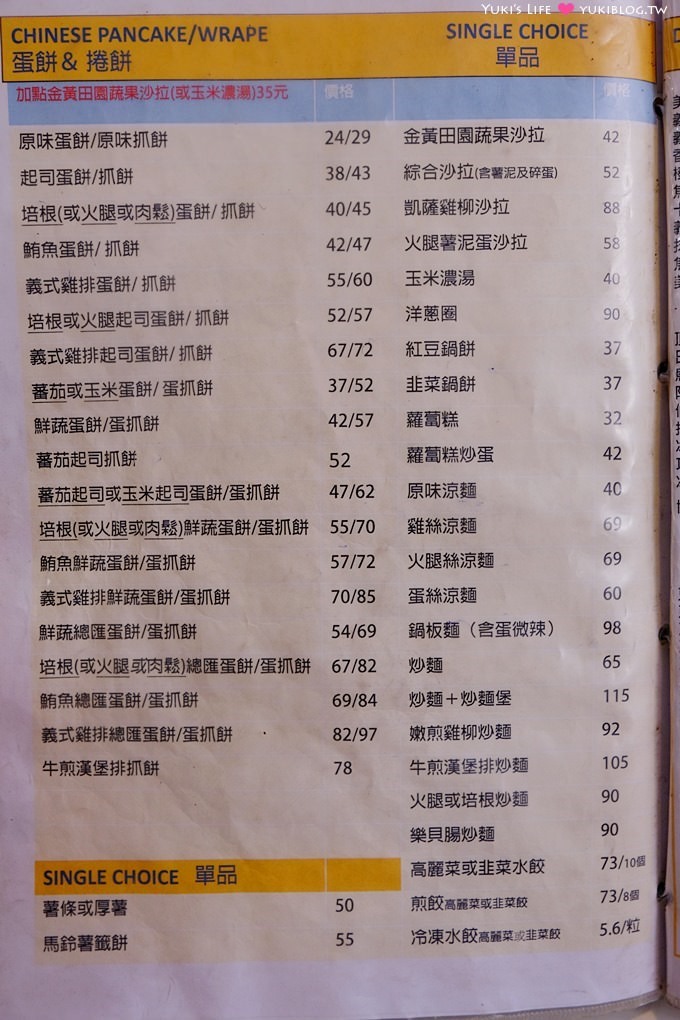 Yuki's Life ♥ yukiblog.tw
CHINESE PANCAKE/WRAPE
蛋餅＆ 捲餅
加點金黃田園蔬果沙拉(或玉米濃湯)35元 價格
原味蛋餅/原味抓餅 24/29
起司蛋餅/抓餅 38/43
培根(或火腿或肉鬆)蛋餅/ 抓餅 40/45
鮪魚蛋餅/ 抓餅 42/47
義式雞排蛋餅/ 抓餅 55/60
培根或火腿起司蛋餅/ 抓餅 52/57
義式雞排起司蛋餅/ 抓餅 67/72
蕃茄或玉米蛋餅/ 蛋抓餅 37/52
鮮蔬蛋餅/蛋抓餅 42/57
蕃茄起司抓餅 52
蕃茄起司或玉米起司蛋餅/蛋抓餅 47/62
培根(或火腿或肉鬆)鮮蔬蛋餅/蛋抓餅 55/70
鮪魚鮮蔬蛋餅/蛋抓餅 57/72
義式雞排鮮蔬蛋餅/蛋抓餅 70/85
鮮蔬總匯蛋餅/蛋抓餅 54/69
培根(或火腿或肉鬆)總匯蛋餅/蛋抓餅 67/82
鮪魚總匯蛋餅/蛋抓餅 69/84
義式雞排總匯蛋餅/蛋抓餅 82/97
牛煎漢堡排抓餅 78
SINGLE CHOICE 單品
薯條或厚薯 50
馬鈴薯籤餅 55
SINGLE CHOICE
單品
價格
金黃田園蔬果沙拉 42
綜合沙拉(含薯泥及碎蛋) 52
凱薩雞柳沙拉 88
火腿薯泥蛋沙拉 58
玉米濃湯 40
洋蔥圈 90
紅豆鍋餅 37
韭菜鍋餅 37
蘿蔔糕 32
蘿蔔糕炒蛋 42
原味涼麵 40
雞絲涼麵 69
火腿絲涼麵 69
蛋絲涼麵 60
鍋板麵（含蛋微辣） 98
炒麵 65
炒麵＋炒麵堡 115
嫩煎雞柳炒麵 92
牛煎漢堡排炒麵 105
火腿或培根炒麵 90
樂貝腸炒麵 90
高麗菜或韭菜水餃 73/10個
煎餃高麗菜或韭菜餃 73/8個
冷凍水餃高麗菜或韭菜餃 5.6/粒